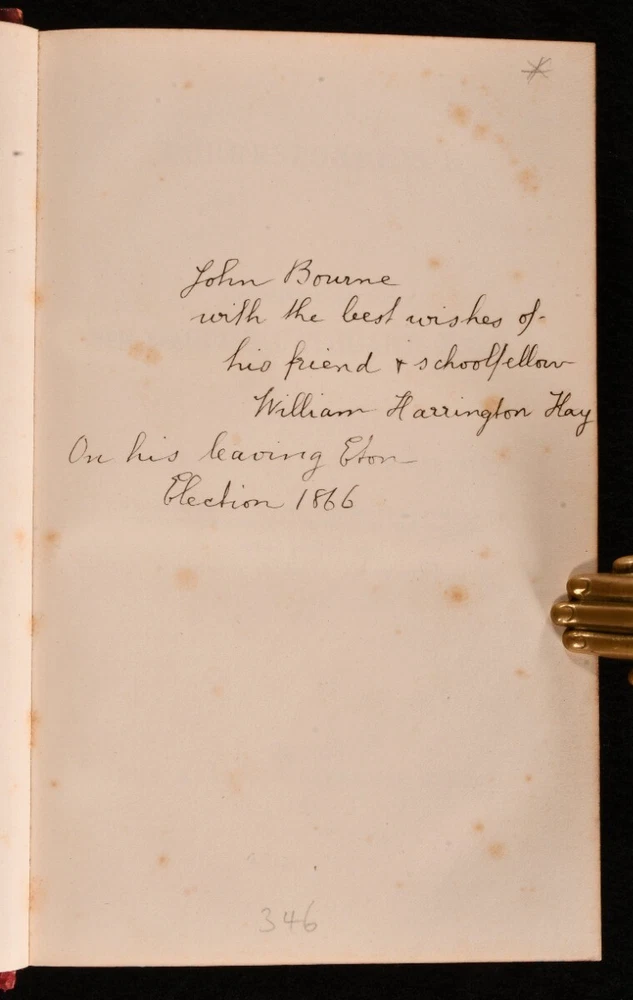 John Bourne
with the best wishes of
his friend & schoolfellow
William Harrington Hay
On his leaving Eton
Election 1866
346